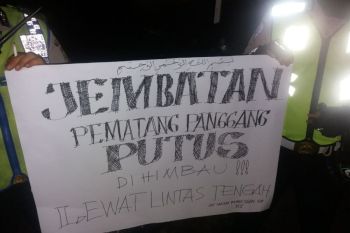 بسم الله الرحمن الرحيم
JEMBATAN
PEMATANG PANGGANG
PUTUS
DIHIMBAU !!!
LEWAT LINTAS TENGAH